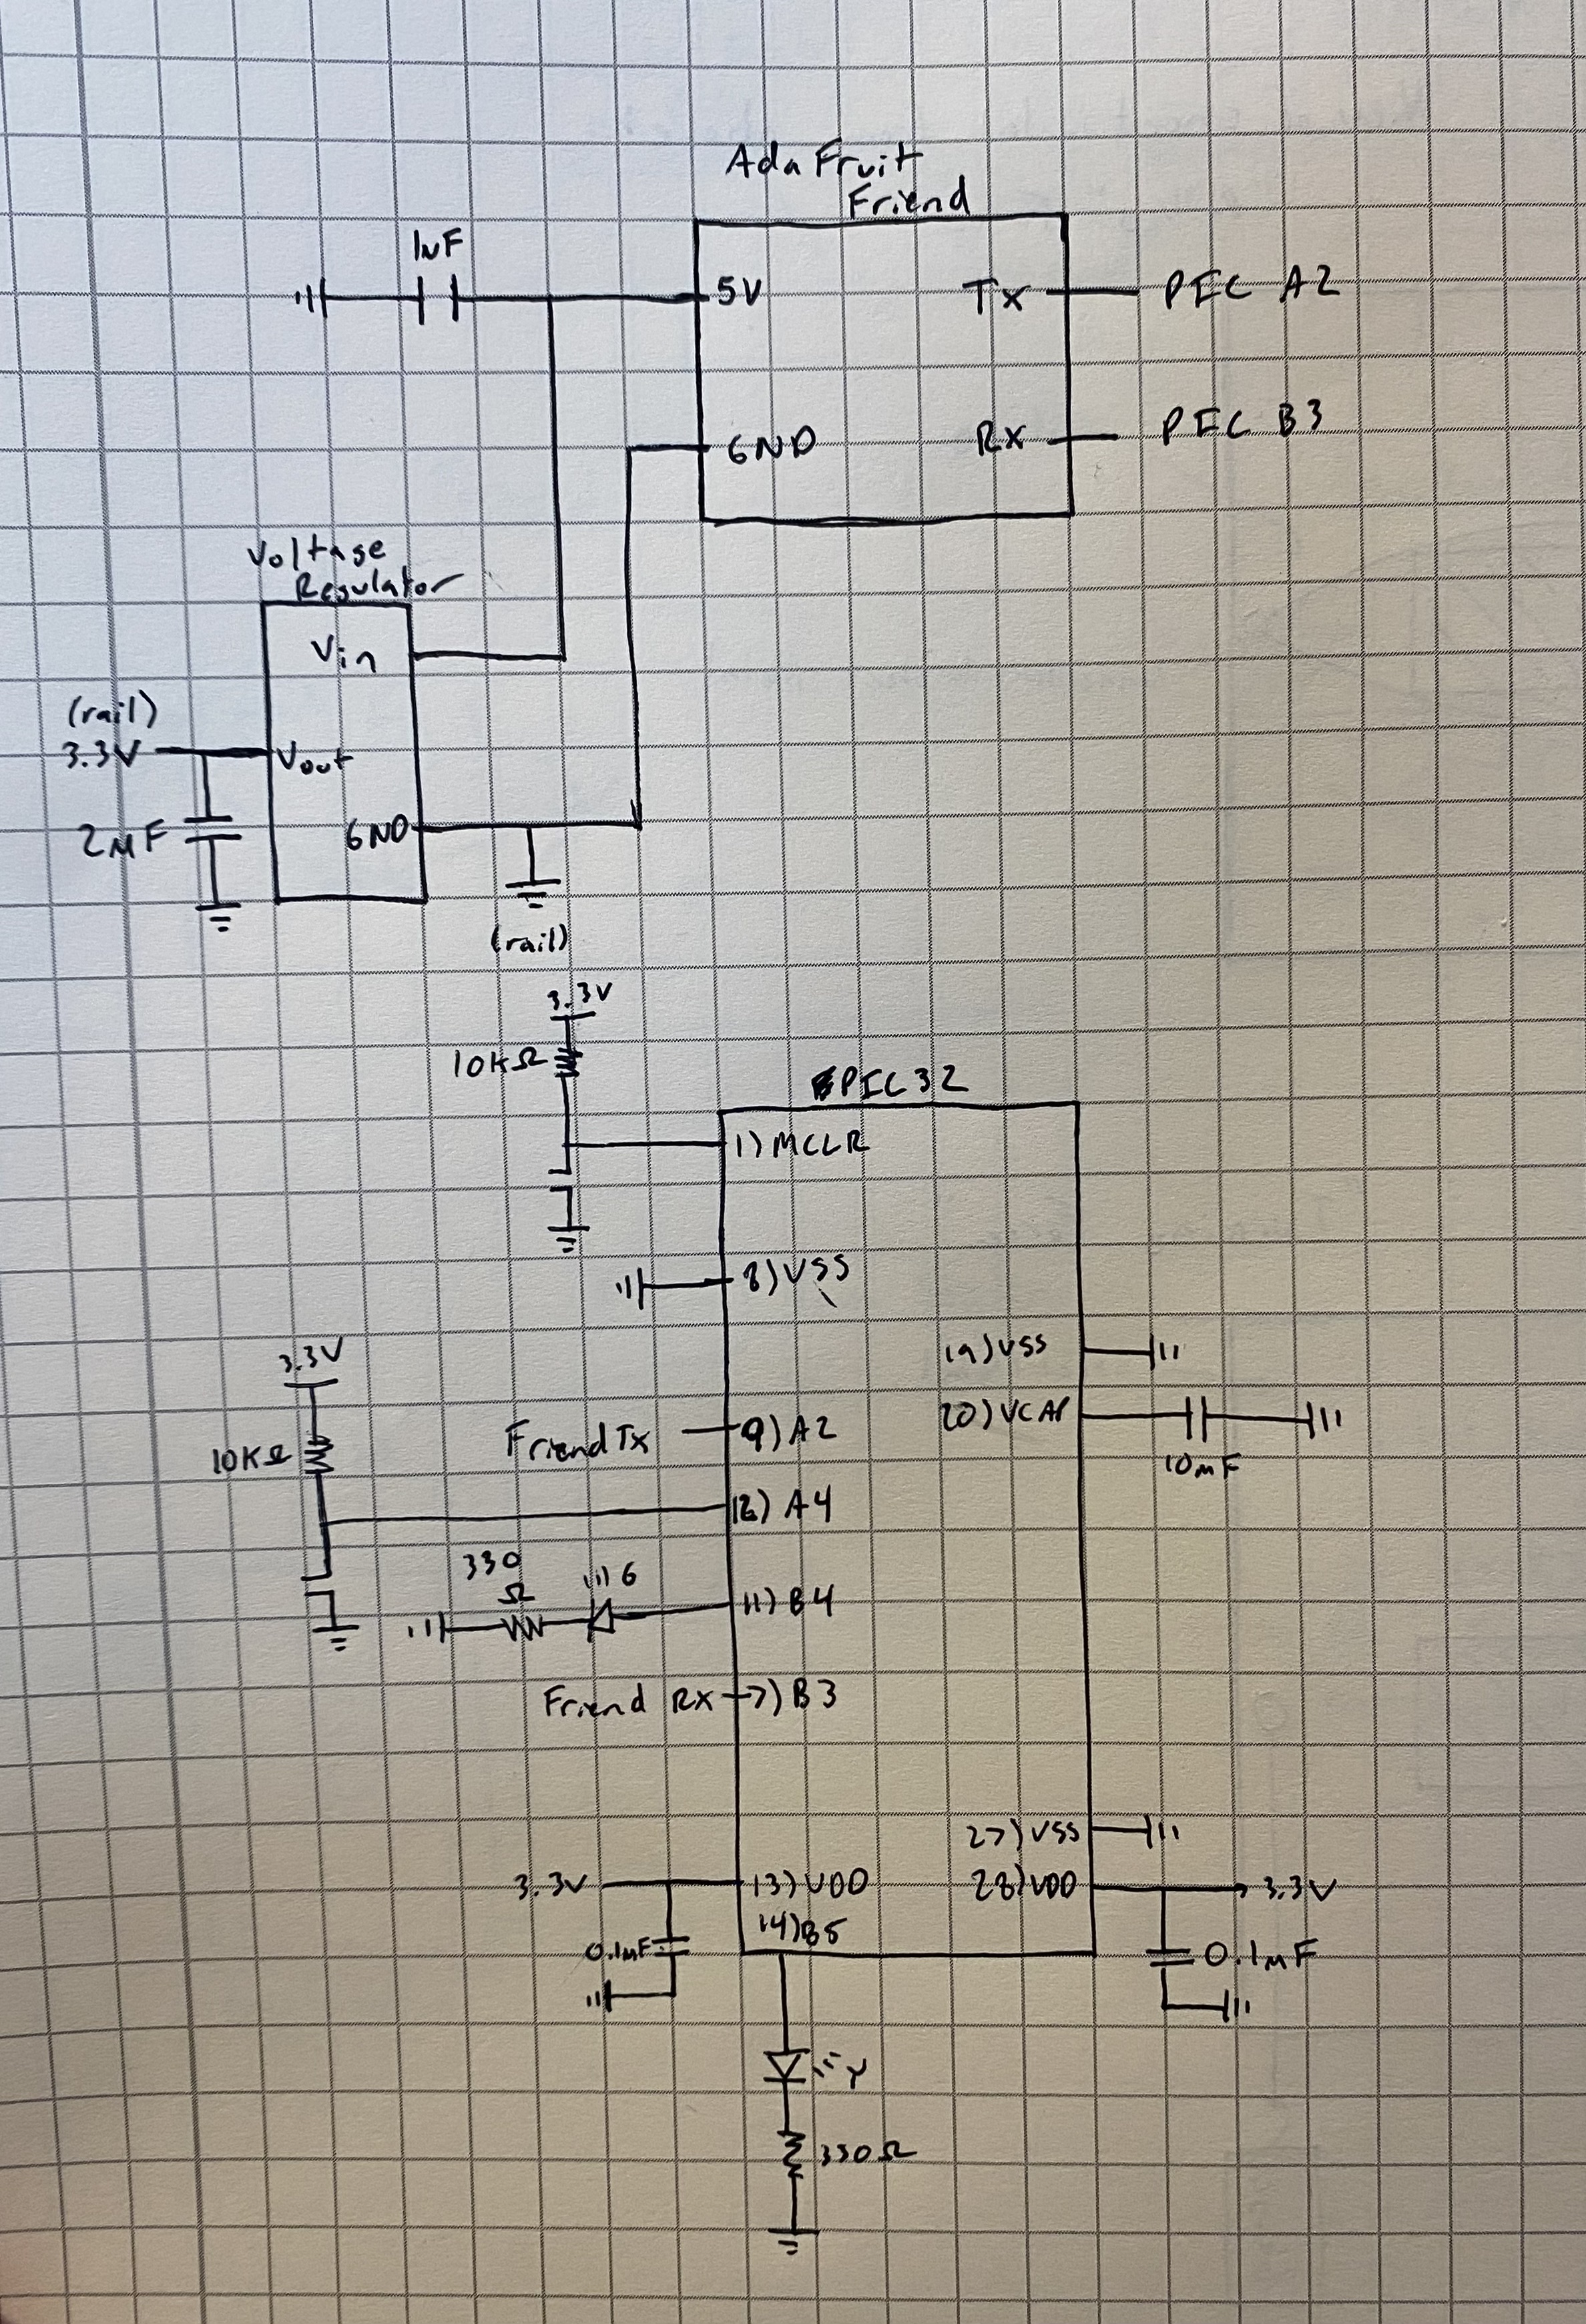 AdaFruit
Friend
1uF
5V
Tx
PIC A2
GND
RX
PIC B3
Voltage
Regulator
Vin
(rail)
3.3V
Vout
2μF
GND
(rail)
3.3V
10KΩ
PIC32
1) MCLR
8) VSS
19) VSS
3.3V
20) VCAP
Friend Tx
9) A2
10KΩ
10μF
12) A4
330
Ω
G
11) B4
Friend RX
7) B3
27) VSS
3.3V
13) VDD
28) VDD
3.3V
14) B5
0.1μF
0.1μF
Y
330Ω